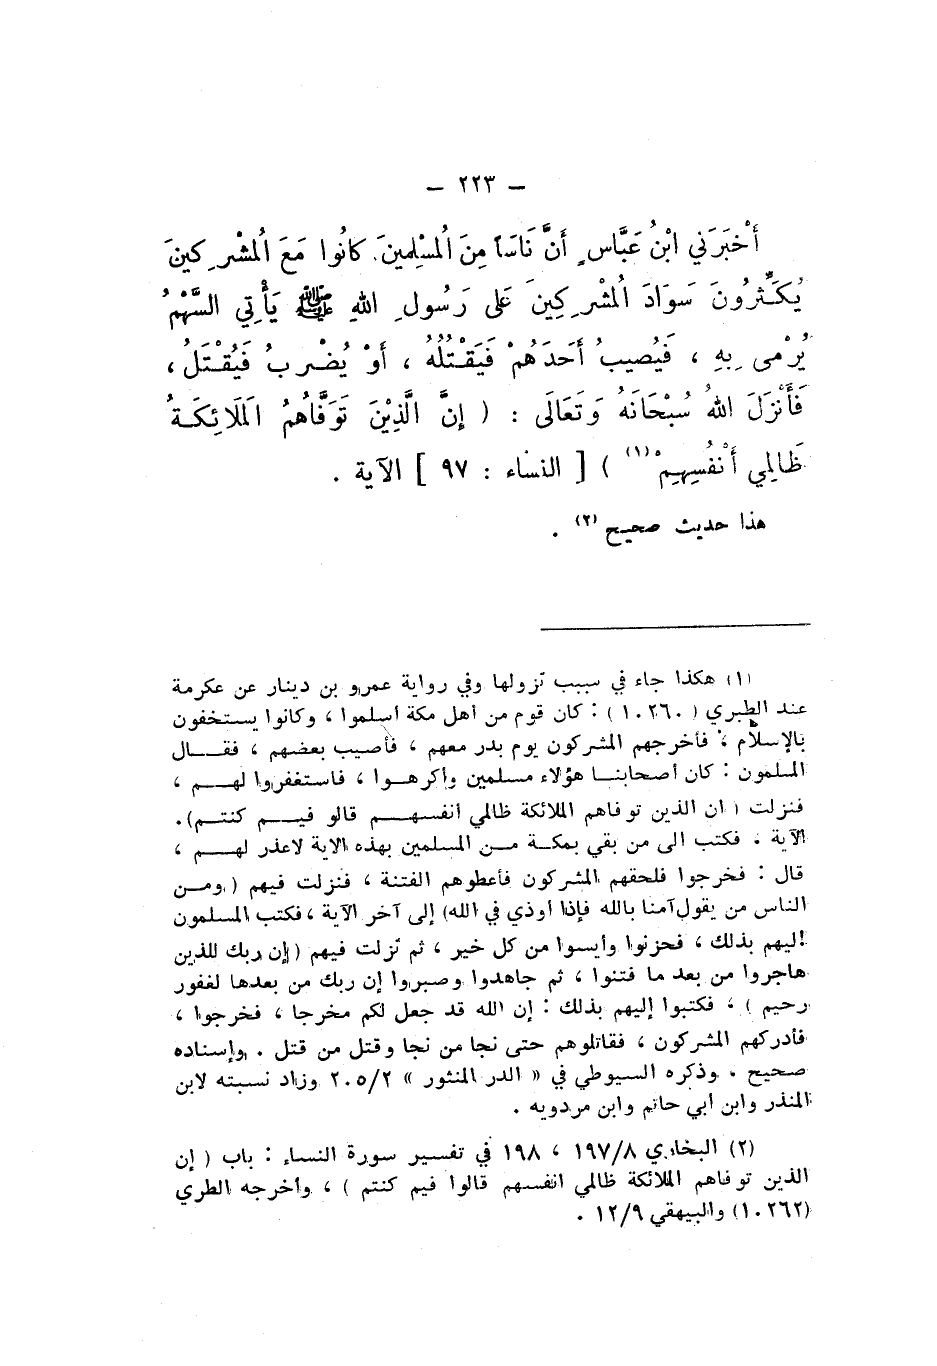 – ٢٢٣ –
أَخْبَرَني ابْنُ عَبَّاسٍ أَنَّ نَاسَاً مِنَ الْمُسْلِمينَ كانُوا مَعَ الْمُشْرِكينَ
يُكَثِّرُونَ سَوَادَ الْمُشْرِكِينَ عَلى رَسُولِ اللهِ ﷺ يَأْتي السَّهْمُ
يُرْمى بِهِ ، فَيُصِيبُ أَحَدَهُمْ فَيَقْتُلُهُ ، أَوْ يُضْربُ فَيُقْتَلُ ،
فَأَنْزَلَ اللهُ سُبْحَانَهُ وَتَعَالَى : ( إِنَّ الَّذِيْنَ تَوَفَّاهُمُ الْمَلَائِكَةُ
ظَالِمِي أَنْفُسِهِمْ (١) ) [ النساء : ٩٧ ] الآية .
هذا حديث صحيح (٢) .
(١) هكذا جاء في سبب نزولها وفي رواية عمرو بن دينار عن عكرمة
عند الطبري ( ١٠٢٦٠ ) : كان قوم من أهل مكة أسلموا ، وكانوا يستخفون
بالإسلام ، فأخرجهم المشركون يوم بدر معهم ، فأصيب بعضهم ، فقال
المسلمون : كان أصحابنا هؤلاء مسلمين وأكرهوا ، فاستغفروا لهم ،
فنزلت ( ان الذين توفاهم الملائكة ظالمي أنفسهم قالو فيم كنتم).
الآية . فكتب الى من بقي بمكة من المسلمين بهذه الاية لاعذر لهم ،
قال : فخرجوا فلحقهم المشركون فأعطوهم الفتنة ، فنزلت فيهم (ومن
الناس من يقول آمنا بالله فإذا أوذي في الله) إلى آخر الآية ، فكتب المسلمون
إليهم بذلك ، فحزنوا وأيسوا من كل خير ، ثم نزلت فيهم (إن ربك للذين
هاجروا من بعد ما فتنوا ، ثم جاهدوا وصبروا إن ربك من بعدها لغفور
رحيم ) ، فكتبوا إليهم بذلك : إن الله قد جعل لكم مخرجا ، فخرجوا ،
فأدركهم المشركون ، فقاتلوهم حتى نجا من نجا وقتل من قتل . وإسناده
صحيح . وذكره السيوطي في « الدر المنثور » ٢٠٥/٢ وزاد نسبته لابن
المنذر وابن أبي حاتم وابن مردويه .
(٢) البخاري ١٩٧/٨ ، ١٩٨ في تفسير سورة النساء : باب ( إن
الذين توفاهم الملائكة ظالمي انفسهم قالوا فيم كنتم ) ، وأخرجه الطري
(١٠٢٦٢) والبيهقي ١٢/٩ .